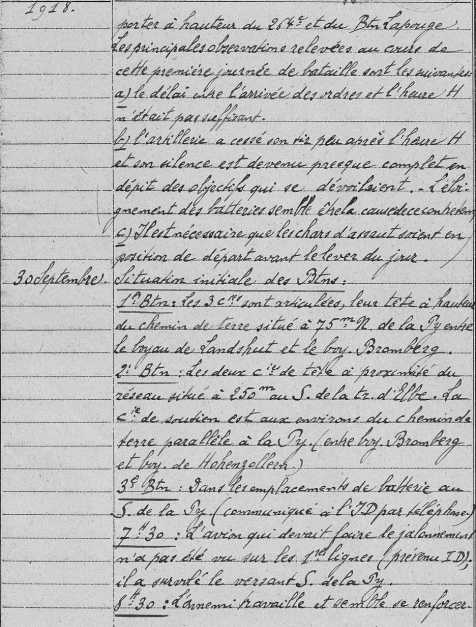 1918.
porter à hauteur du 264e et du Btn Lapouge.
Les principales observations relevées au cours de
cette première journée de bataille sont les suivantes:
a) le délai entre l'arrivée des ordres et l'heure H
n'était pas suffisant.
b) l'artillerie a cessé son tir peu après l'heure H
et son silence est devenu presque complet en
dépit des objectifs qui se dévoilaient. - L'éloi-
gnement des batteries semble être la cause de ce
c) Il est nécessaire que les chars d'assaut soient en
position de départ avant le lever du jour.
30 Septembre. Situation initiale des Btns:
1er Btn: Les 3 cies sont articulées, leur tête à hauteur
du chemin de terre situé à 75m N. de la Py entre
le boyau de Landshut et le boy. Bromberg.
2e Btn: Les deux cies de tête à proximité du
réseau situé à 250m au S. de la tr. d'Elbe. La
cie de soutien est aux environs du chemin de
terre parallèle à la Py. (entre boy. Bromberg
et boy. de Hohenzollern.)
3e Btn: Dans les emplacements de batterie au
S. de la Py (communiqué à l'ID par téléphone)
7h30: L'avion qui devait faire le jalonnement
n'a pas été vu sur les 1res lignes (prévenu ID),
il a survolé le versant S. de la Py.
8h30: L'ennemi travaille et semble se renforcer